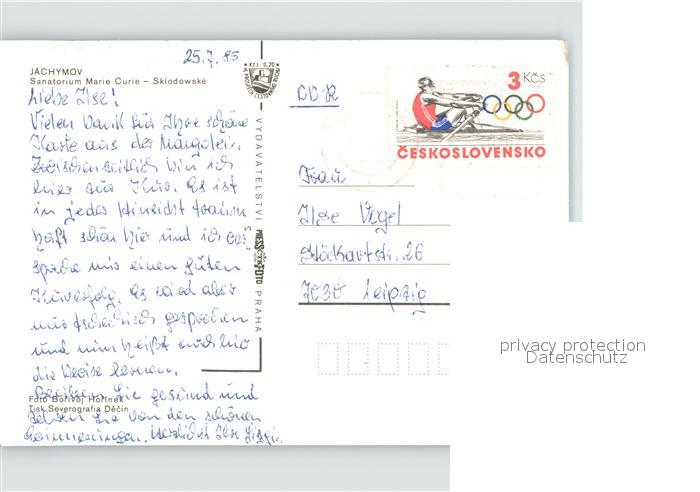 25.7.85
JÁCHYMOV
Sanatorium Marie Curie – Sklodowské
Kčs 0,20
Liebe Ilse!
Vielen Dank für Ihre schöne
Karte aus der
Zwischenzeitlich bin ich
hier zur Kur. Es ist
in jeder Hinsicht traum
haft schön hier und ich
spreche mir einen guten
Kurerfolg. Es wird aber
nur tschechisch gesprochen
und nun heißt
die Weise lernen.
Bleiben Sie gesund und
Sie von den schönen
Erinnerungen. Herzlichst Ihre
Foto Bořivoj Hořínek
Tisk Severografia Děčín
VYDAVATELSTVÍ PRESSFOTO PRAHA
DDR
3 Kčs
ČESKOSLOVENSKO
Frau
Ilse Vogel
Stöckartstr. 26
7030 Leipzig
privacy protection
Datenschutz